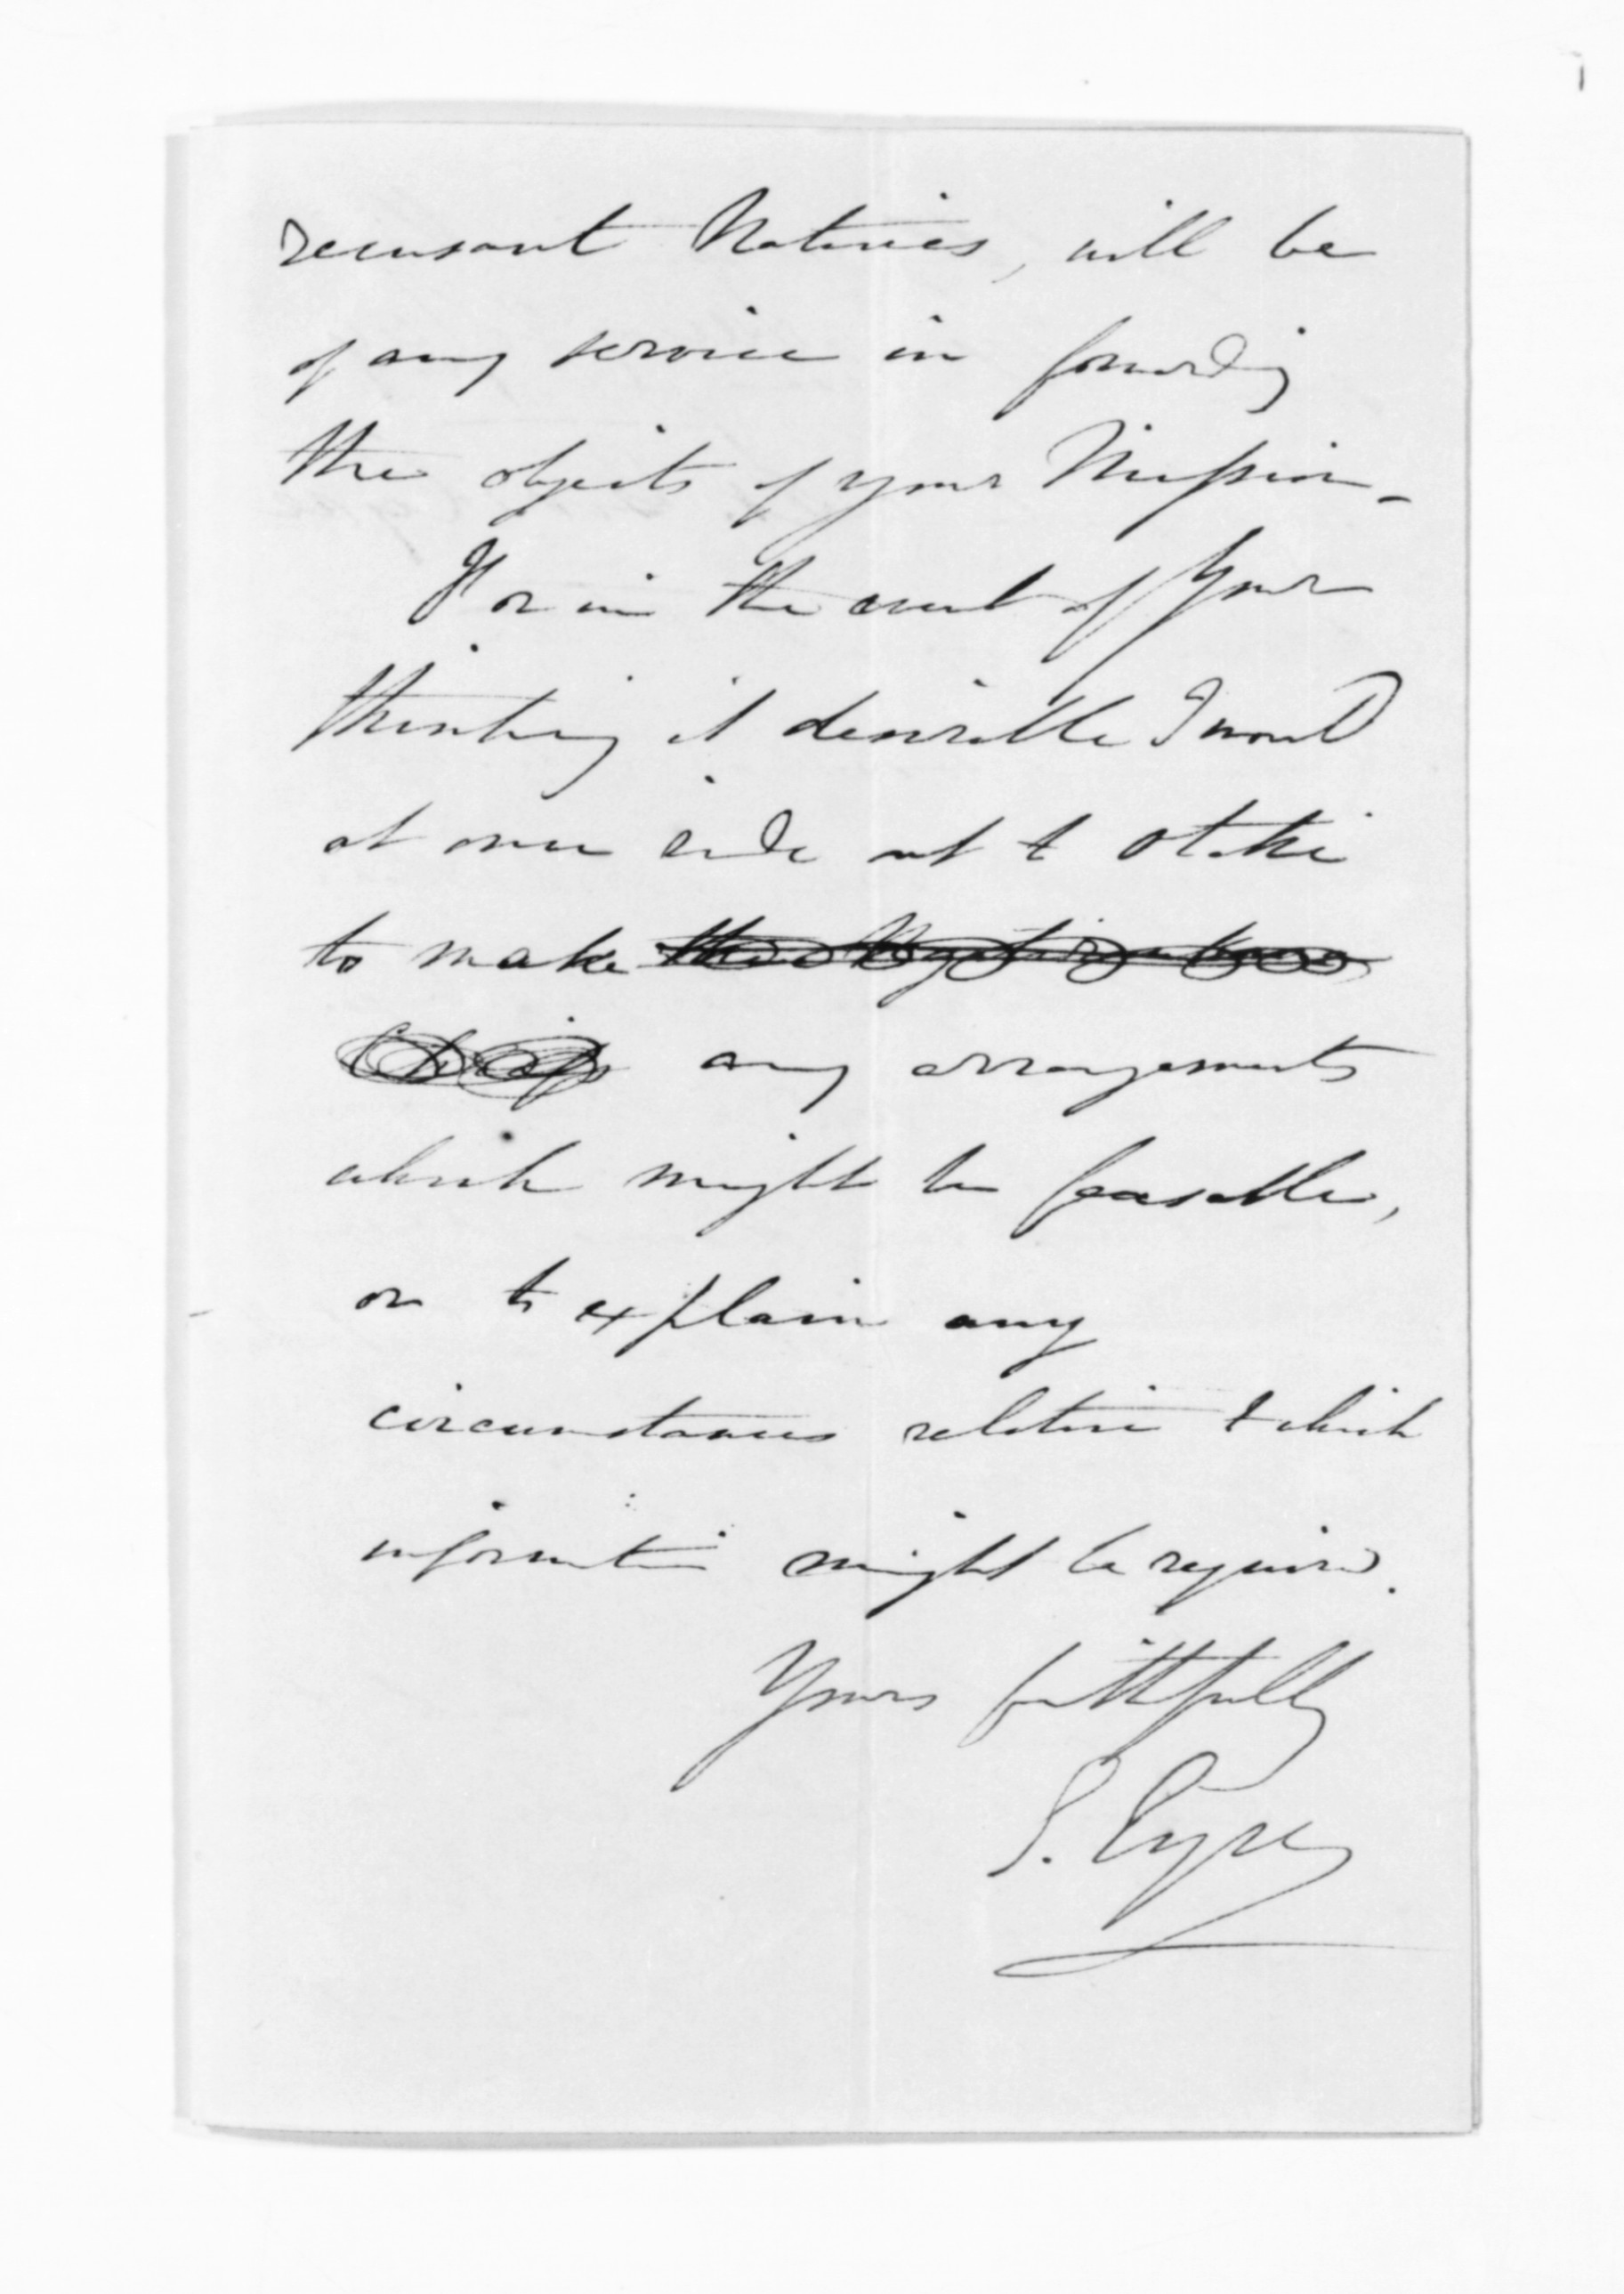 recusant Natives, will be
of any service in forwarding
the objects of your Mission -
If or in the event of your
thinking it desirable I would
at once ride out to Otaki
to make the
any arrangements
which might be feasable,
or to explain any
circumstances relative to which
information might be required.
Yours faithfully
E. Eyre